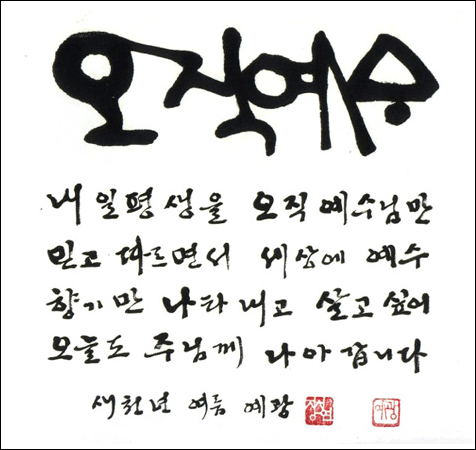 오직예수
내 일평생을 오직 예수님만
믿고 따르면서 세상에 예수
향기만 나타내고 살고 싶어
오늘도 주님께 나아갑니다
새천년 여름 예광
예광